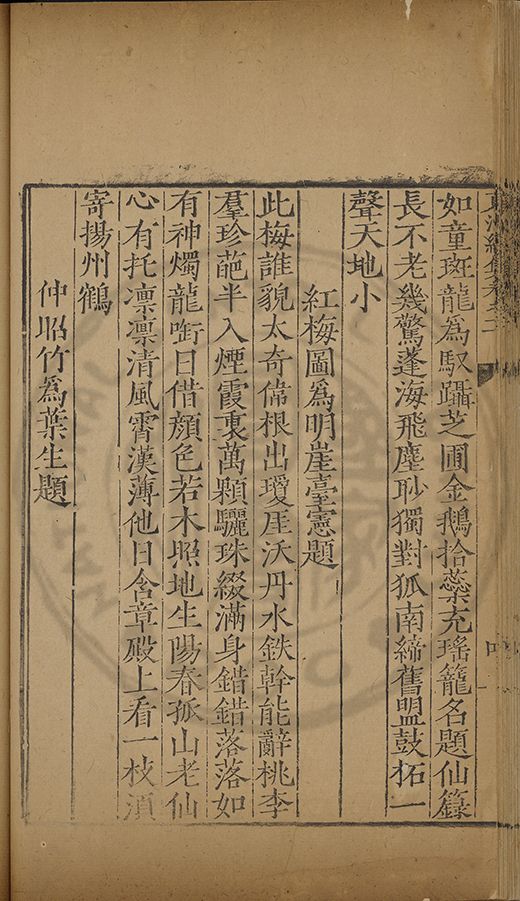 如童斑龍爲馭躡芝圃金鵝拾蘂充瑤籠名題仙籙
長不老幾驚蓬海飛塵耖獨對狐南締舊盟鼓拓一
聲天地小
紅梅圖爲明崖臺憲題
此梅誰貌太奇偹根出瓊厓沃丹水鉄幹能辭桃李
羣珍葩半入煙霞裏萬顆驪珠綴滿身錯錯落落如
有神燭龍啣日借顔色若木照地生陽春孤山老仙
心有托凛凛清風霄漢薄他日含章殿上看一枝湏
寄揚州鶴
仲昭竹爲葉生題